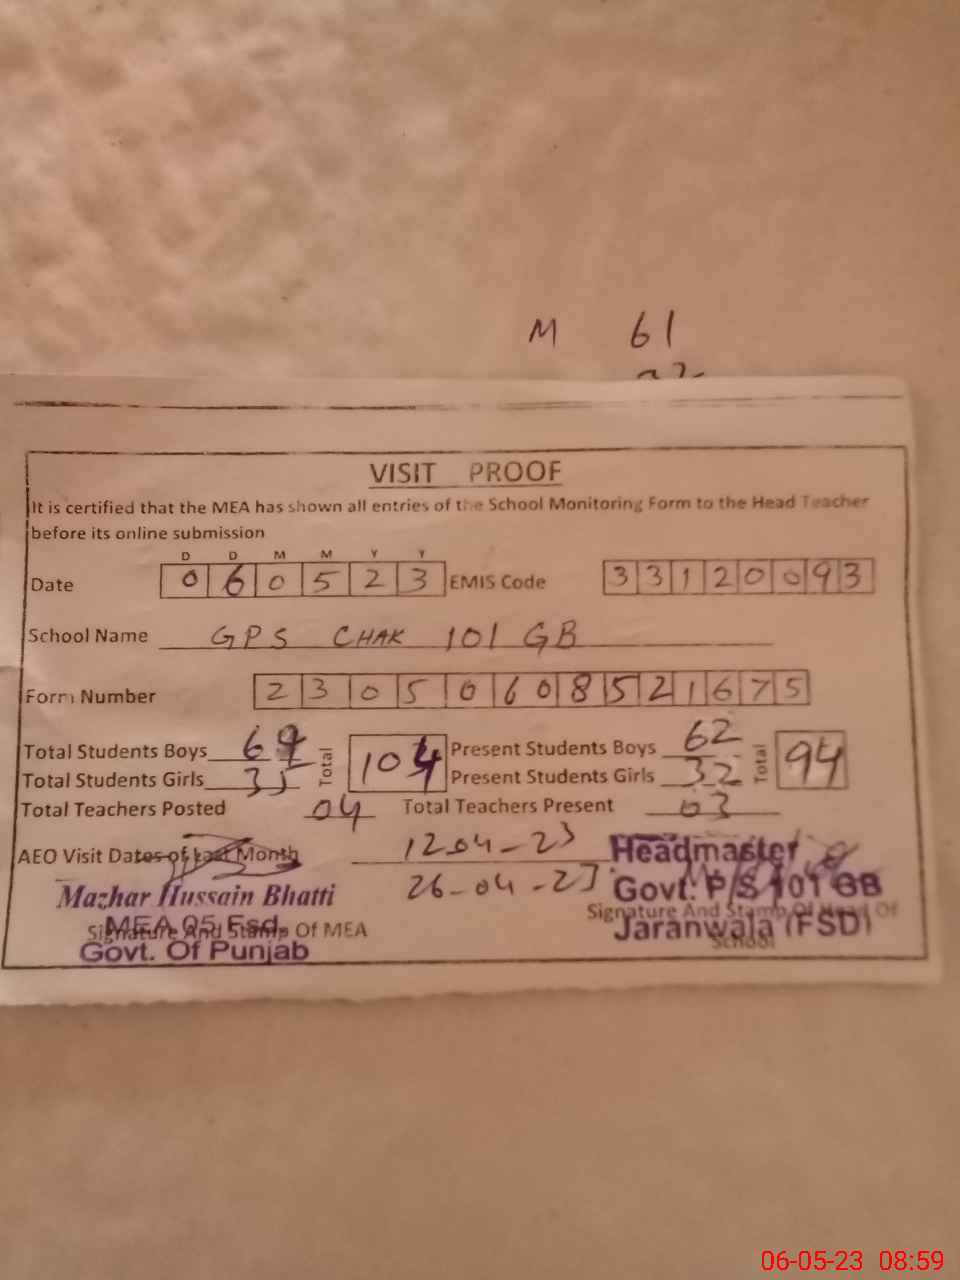 M 61
VISIT PROOF
It is certified that the MEA has shown all entries of the School Monitoring Form to the Head Teacher
before its online submission
D D M M Y Y
Date 0 6 0 5 2 3 EMIS Code 3 3 1 2 0 0 9 3
School Name GPS CHAK 101 GB
Form Number 2 3 0 5 0 6 0 8 5 2 1 6 7 5
Total Students Boys 69 Total 104 Present Students Boys 62 Total 94
Total Students Girls 35 Present Students Girls 32
Total Teachers Posted 04 Total Teachers Present 03
AEO Visit Dates of Last Month 12-04-23
26-04-23
Mazhar Hussain Bhatti
MEA 05 Fsd.
Signature And Stamp Of MEA
Govt. Of Punjab
Headmaster
Govt. P/S 101 GB
Signature And Stamp Of Head Of
School
Jaranwala (FSD)
06-05-23 08:59